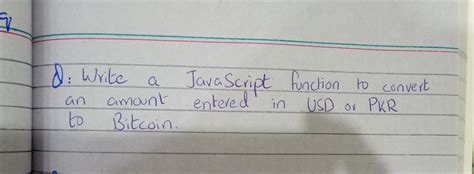 Q: Write a JavaScript function to convert
an amount entered in USD or PKR
to Bitcoin.